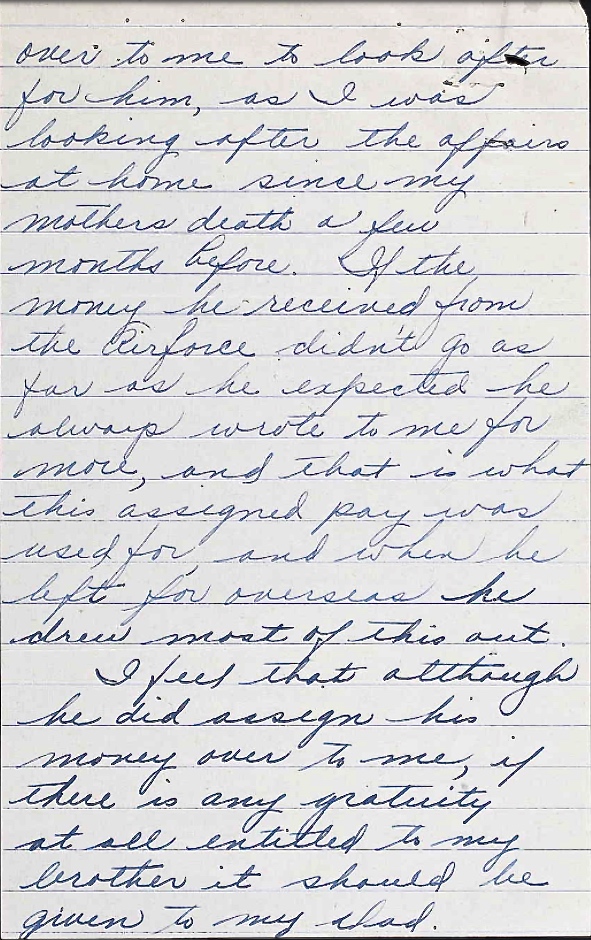 over to me to look after
for him, as I was
looking after the affairs
at home since my
mothers death a few
months before. If the
money he received from
the Airforce didn't go as
far as he expected he
always wrote to me for
more, and that is what
this assigned pay was
used for, and when he
left for overseas he
drew most of this out.
I feel that although
he did assign his
money over to me, if
there is any gratuity
at all entitled to my
brother it should be
given to my Dad.